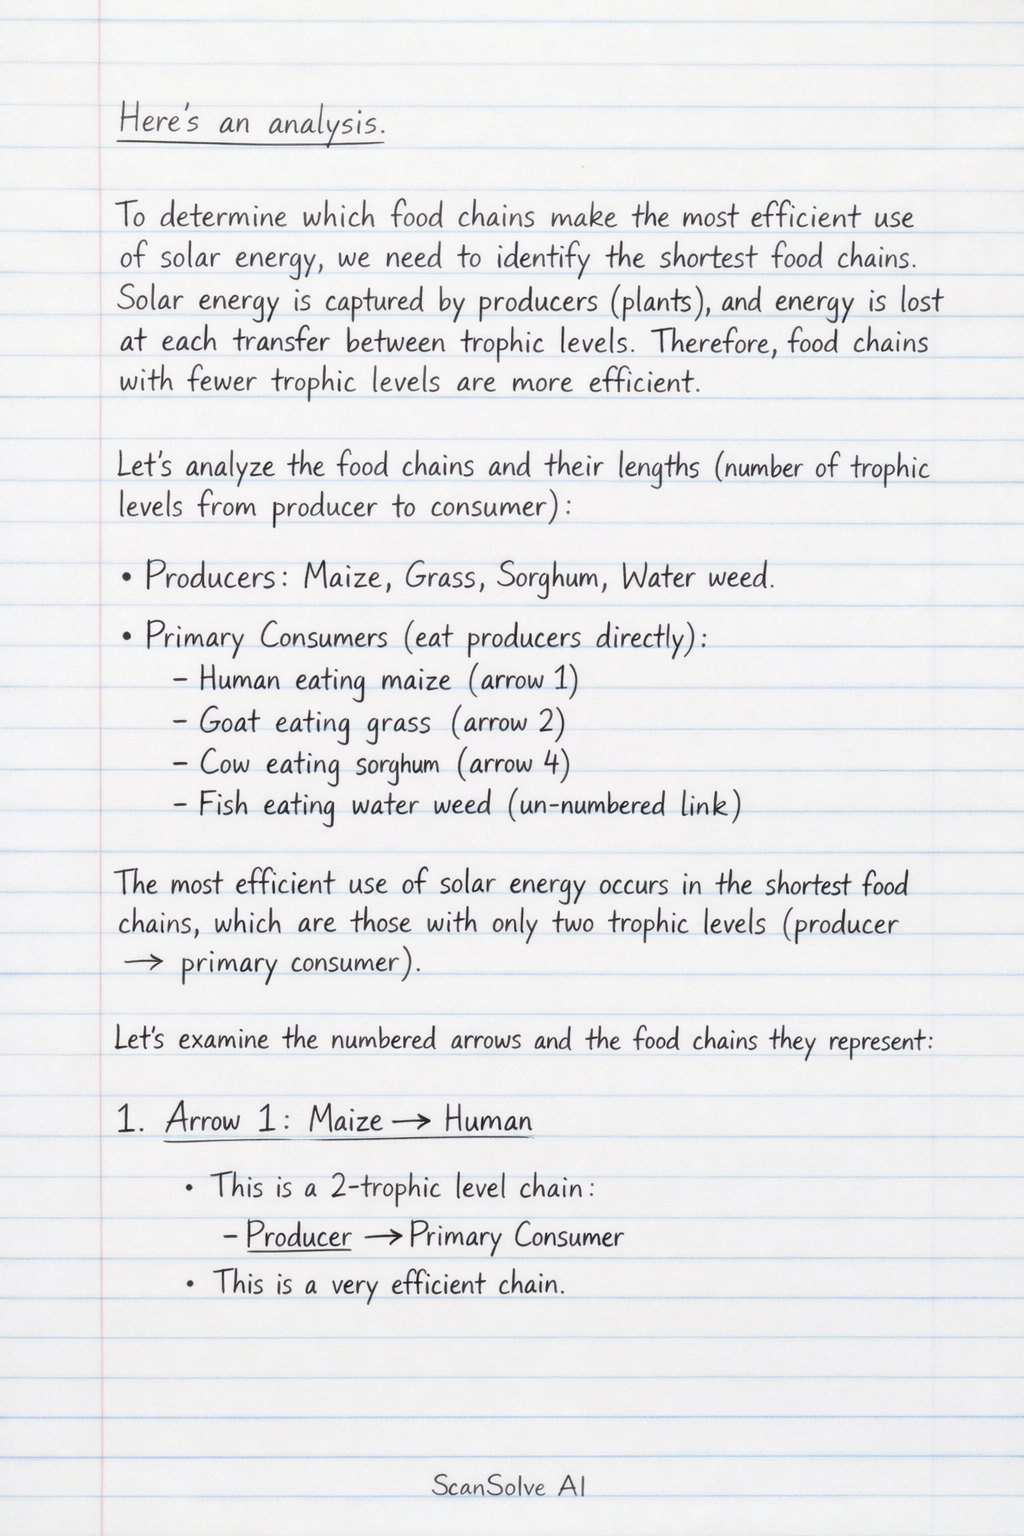 Here's an analysis.
To determine which food chains make the most efficient use
of solar energy, we need to identify the shortest food chains.
Solar energy is captured by producers (plants), and energy is lost
at each transfer between trophic levels. Therefore, food chains
with fewer trophic levels are more efficient.
Let's analyze the food chains and their lengths (number of trophic
levels from producer to consumer):
• Producers: Maize, Grass, Sorghum, Water weed.
• Primary Consumers (eat producers directly):
– Human eating maize (arrow 1)
– Goat eating grass (arrow 2)
– Cow eating sorghum (arrow 4)
– Fish eating water weed (un-numbered link)
The most efficient use of solar energy occurs in the shortest food
chains, which are those with only two trophic levels (producer
→ primary consumer).
Let's examine the numbered arrows and the food chains they represent:
1. Arrow 1: Maize → Human
• This is a 2-trophic level chain:
– Producer → Primary Consumer
• This is a very efficient chain.
ScanSolve AI